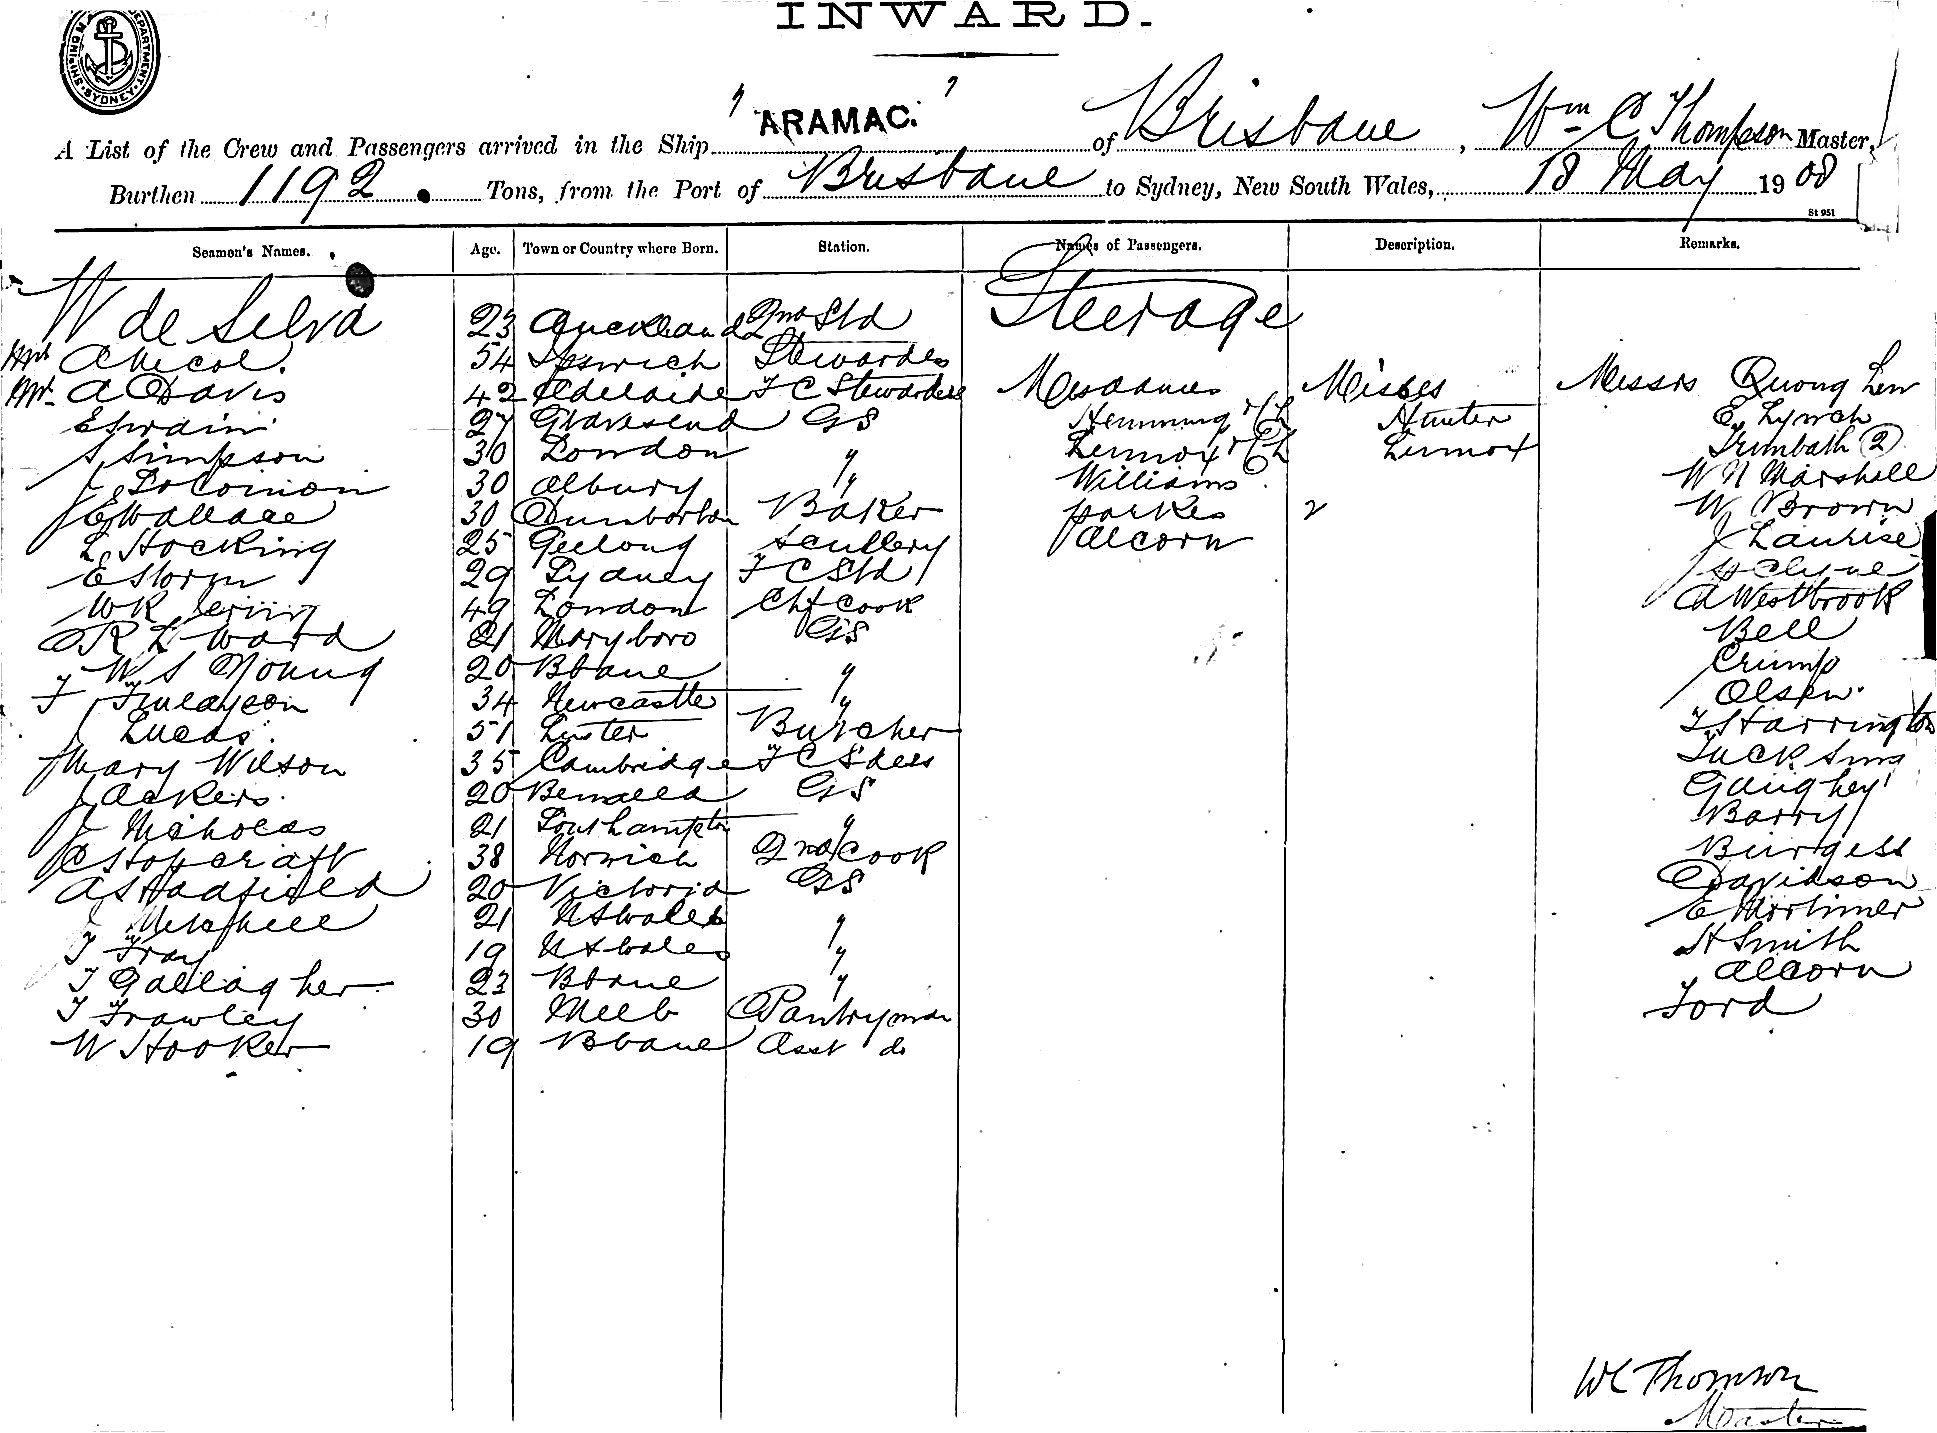 INWARD.
SHIPPING DEPARTMENT SYDNEY
A List of the Crew and Passengers arrived in the Ship "ARAMAC." of Brisbane, Wm C Thompson Master,
Burthen 1192 Tons, from the Port of Brisbane to Sydney, New South Wales, 18 May 1908
St 951
Seamen's Names. Age. Town or Country where Born. Station. Names of Passengers. Description. Remarks.
W de Silva 23 Auckland 2nd Std Steerage
Mrs A Nicol. 54 Ipswich Stewardes
Mrs A Davis 42 Adelaide F C Stewardess Mesdames Misses Messrs Quong Lew
E Swain 27 Gravesend GS Hemming & Ch Hunter E Lynch
S Simpson 30 London " Lennox & Ch Lennox Trimbath 2
J Solomon 30 Albury " Williams W N Marshall
J E Wallace 30 Dumbarton Baker Parkes 2 W Brown
L Hocking 25 Geelong Scullery Alcorn J Laurise
E Storm 29 Sydney F C Std J Clyne
W R 49 London Chf Cook A Westbrook
R L Ward 21 Maryboro GS Bell
W S Young 20 Bbane " Crump
F Finlayson 34 Newcastle " Olsen
J Lucas. 51 Butcher T Harrington
Mary Wilson 35 Cambridge F C S'dess Tuck Sing
J Ackers. 20 Benalla GS Gaughey
J Nicholas 21 Southampton " Barry
C Hopcraft 38 Norwich 2nd Cook Burgess
A S Hadfield 20 Victoria GS Davidson
J Mitchell 21 N S Wales " E Mortimer
T Fray 19 N S Wales " H Smith
T Gallagher 23 Bbane " Alcorn
T Frawley 30 Melb Pantryman Ford
W Hooker 19 Bbane Asst do
W C Thomson
Master